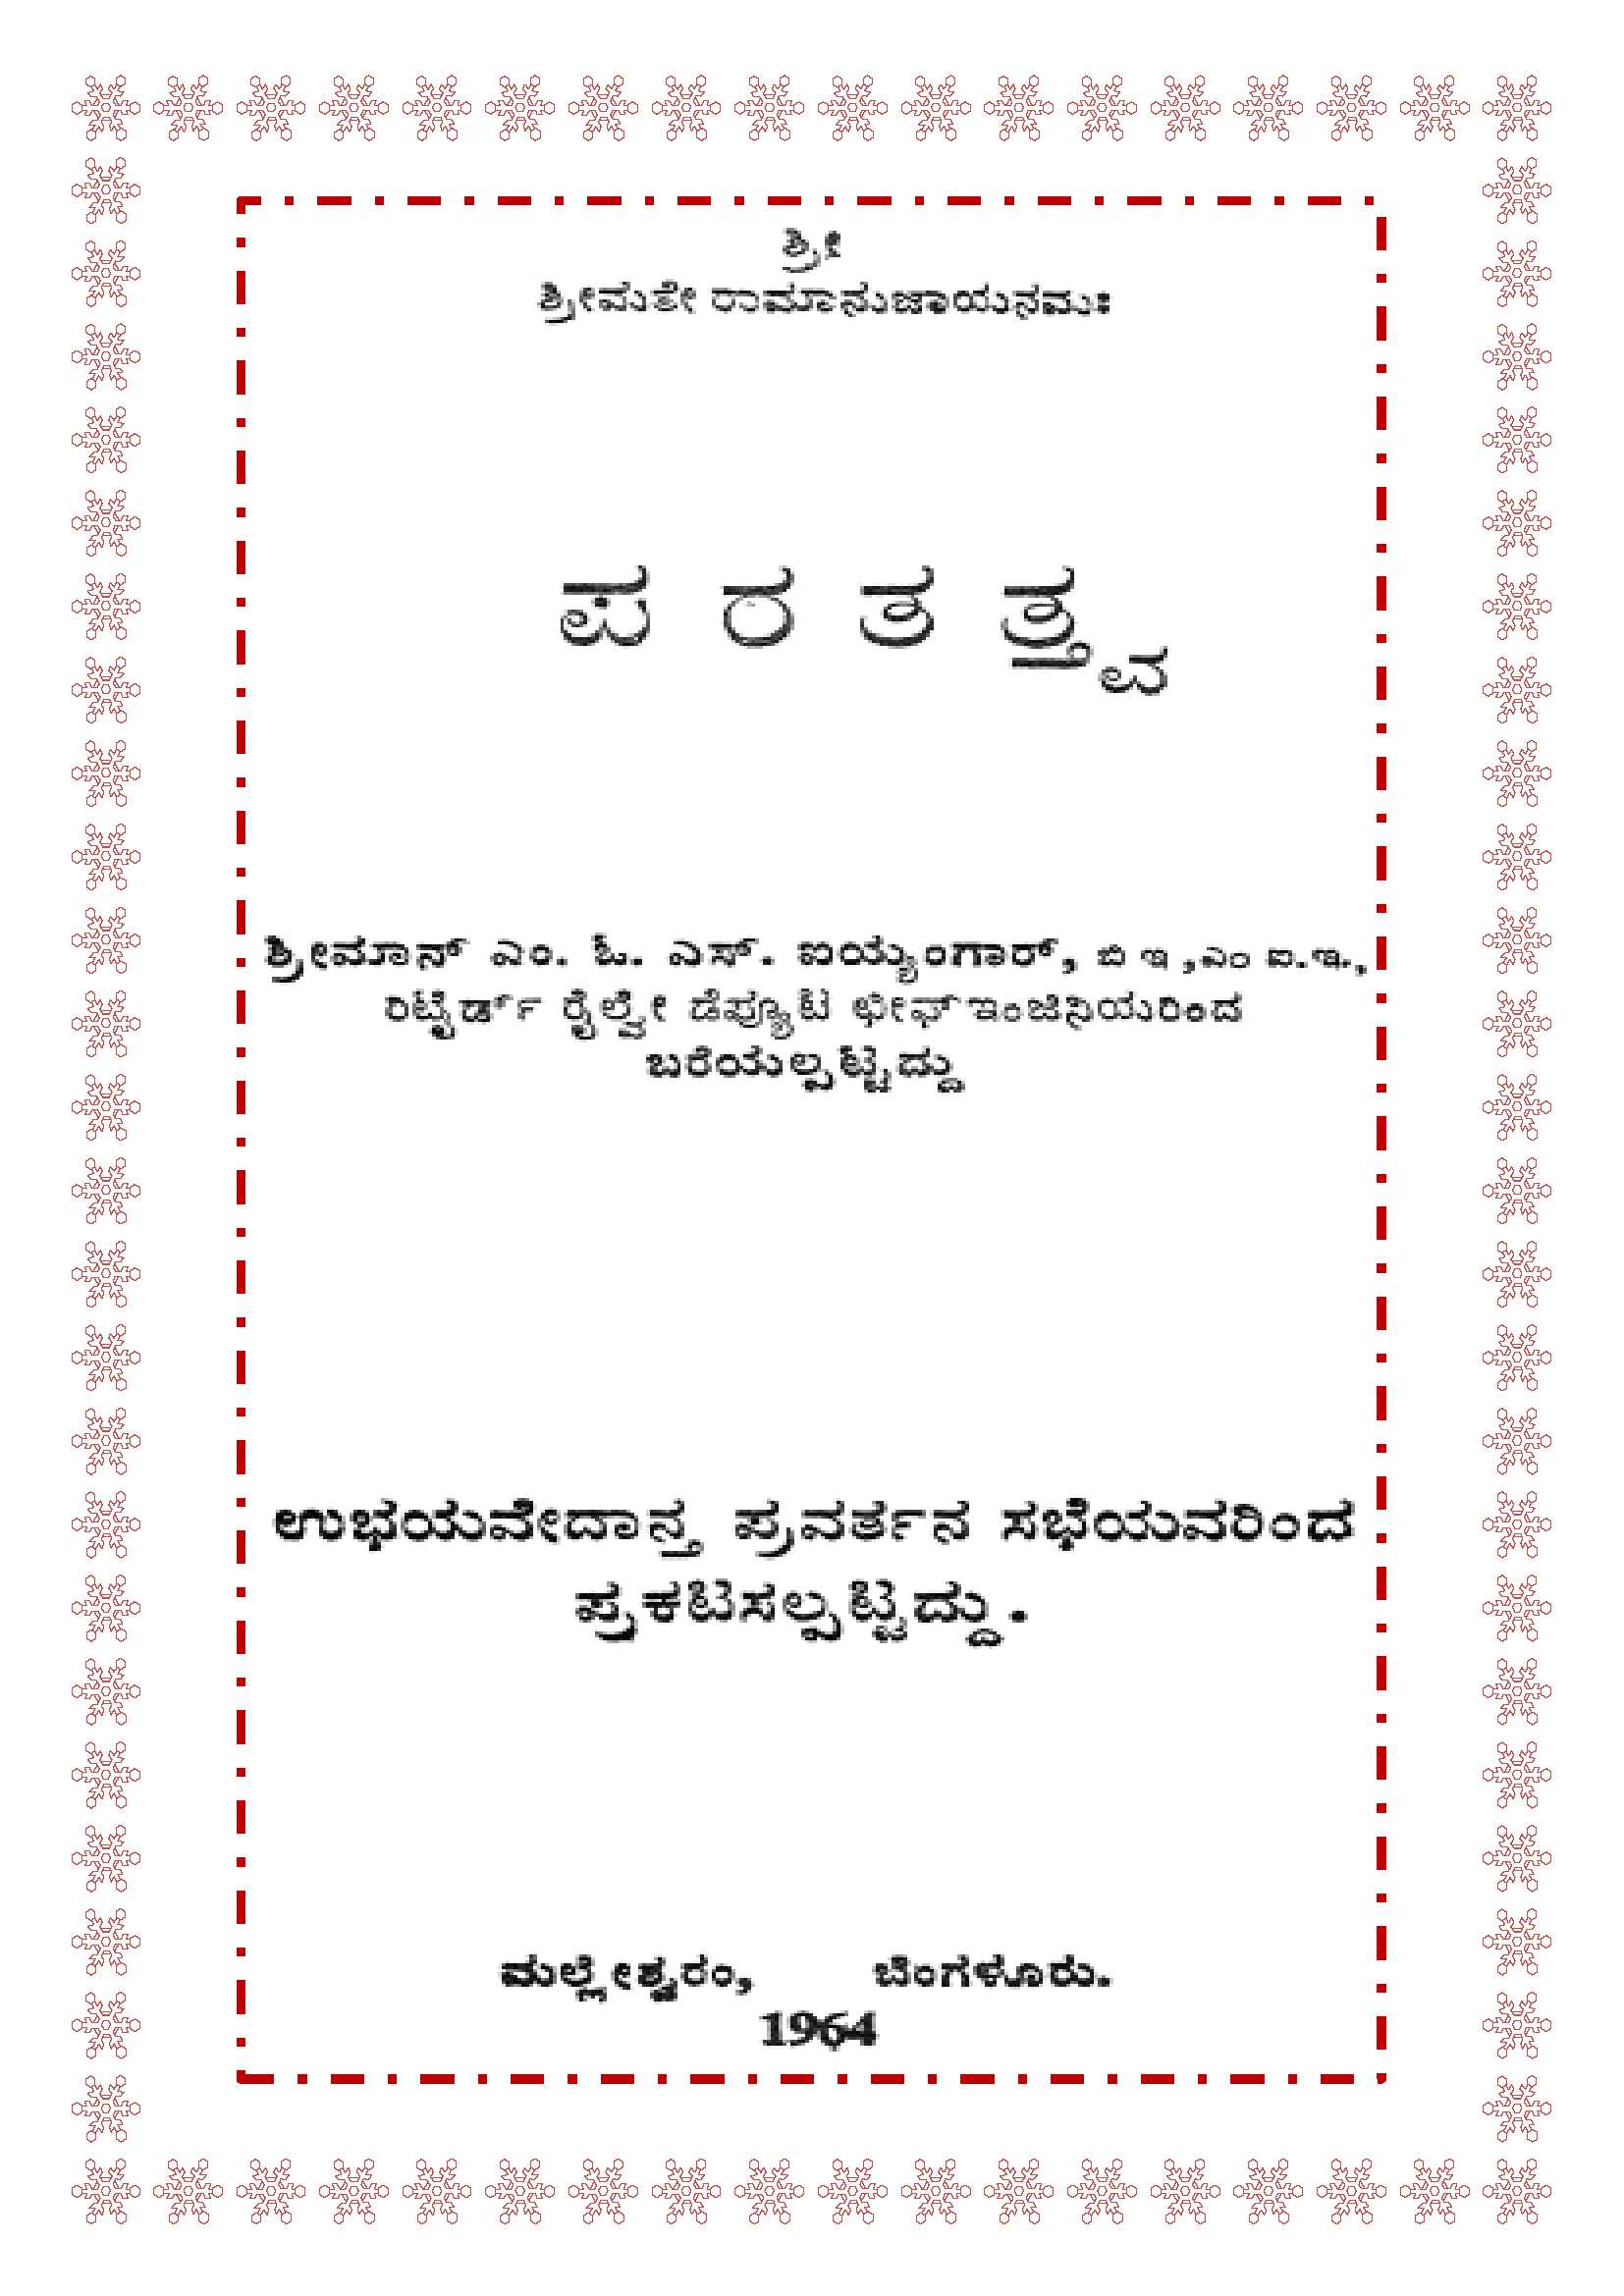 ಶ್ರೀ
ಶ್ರೀಮತೇ ರಾಮಾನುಜಾಯನಮಃ
ಪ ರ ತ ತ್ತ್ವ
ಶ್ರೀಮಾನ್ ಎಂ. ಓ. ಎಸ್. ಐಯ್ಯಂಗಾರ್, ಬಿ ಇ ,ಎಂ ಐ.ಇ.,
ರಿಟೈರ್ಡ್ ರೈಲ್ವೇ ಡೆಪ್ಯೂಟಿ ಛೀಫ್ ಇಂಜಿನಿಯರಿಂದ
ಬರೆಯಲ್ಪಟ್ಟದ್ದು
ಉಭಯವೇದಾನ್ತ ಪ್ರವರ್ತನ ಸಭೆಯವರಿಂದ
ಪ್ರಕಟಿಸಲ್ಪಟ್ಟದ್ದು.
ಮಲ್ಲೇಶ್ವರಂ, ಬೆಂಗಳೂರು.
1964